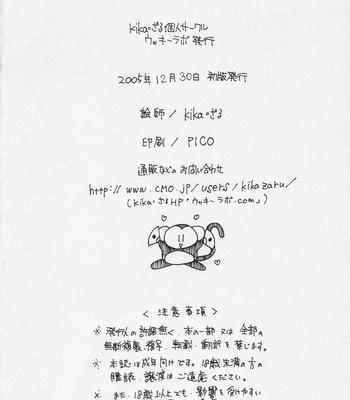 kika=ざる個人サークル
ウッキーラボ発行
2005年12月30日 初版発行
絵師 / kika=ざる
印刷 / PICO
通販などのお問い合わせ
http://www.cmo.jp/users/kikazaru/
(kika=ざるHP「ウッキーラボ.com」)
< 注意事項 >
※ 発行人の許諾無く、本の一部又は全部の
無断複製、複写、転載、翻訳を禁じます。
※ 本誌は成年向けです。18歳未満の方の
購読、譲渡はご遠慮ください。
※ また、18歳以上でも、影響を受けやすい